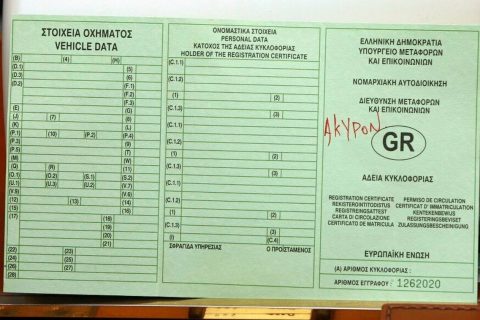 ΣΤΟΙΧΕΙΑ ΟΧΗΜΑΤΟΣ
VEHICLE DATA
(B) (4) (H)
(D.1) (5)
(D.2) (6)
(D.3) (7)
(8)
(9)
(10)
(11)
(E)
(J) (7)
(K)
(P.1) (10) (P.2)
(P.3)
(M)
(Q) (R)
(O.1) (O.2) (S.1)
(U.1) (U.3) (U.2)
(V.9)
(12) (13)
(15)
(17) (18)
(19)
(20)
(21)
(22) (23)
(24) (25)
(26) (27)
(28)
ΟΝΟΜΑΣΤΙΚΑ ΣΤΟΙΧΕΙΑ
PERSONAL DATA
ΚΑΤΟΧΟΣ ΤΗΣ ΑΔΕΙΑΣ ΚΥΚΛΟΦΟΡΙΑΣ
HOLDER OF THE REGISTRATION CERTIFICATE
(C.1.1)
(C.1.2)
(1) (2)
(C.1.3) (3)
(C.1.1)
(C.1.2)
(1) (2)
(C.1.3) (3)
(C.1.1)
(C.1.2)
(1) (2)
(C.1.3) (3)
(I) (C.4)
ΣΦΡΑΓΙΔΑ ΥΠΗΡΕΣΙΑΣ Ο ΠΡΟΪΣΤΑΜΕΝΟΣ
ΕΛΛΗΝΙΚΗ ΔΗΜΟΚΡΑΤΙΑ
ΥΠΟΥΡΓΕΙΟ ΜΕΤΑΦΟΡΩΝ
ΚΑΙ ΕΠΙΚΟΙΝΩΝΙΩΝ
ΝΟΜΑΡΧΙΑΚΗ ΑΥΤΟΔΙΟΙΚΗΣΗ
ΔΙΕΥΘΥΝΣΗ ΜΕΤΑΦΟΡΩΝ
ΚΑΙ ΕΠΙΚΟΙΝΩΝΙΩΝ
ΑΚΥΡΟΝ
GR
ΑΔΕΙΑ ΚΥΚΛΟΦΟΡΙΑΣ
REGISTRATION CERTIFICATE PERMISO DE CIRCULACION
REKISTERÖINTITODISTUS CERTIFICAT D' IMMATRICULATION
REGISTRERINGSATTEST KENTEKENBEWIJS
CARTA DI CIRCOLAZIONE REGISTRERINGSBEVISET
CERTIFICADO DE MATRICULA ZULASSUNGSBESCHEINIGUNG
ΕΥΡΩΠΑΪΚΗ ΕΝΩΣΗ
(A) ΑΡΙΘΜΟΣ ΚΥΚΛΟΦΟΡΙΑΣ :
ΑΡΙΘΜΟΣ ΕΓΓΡΑΦΟΥ : 1262020